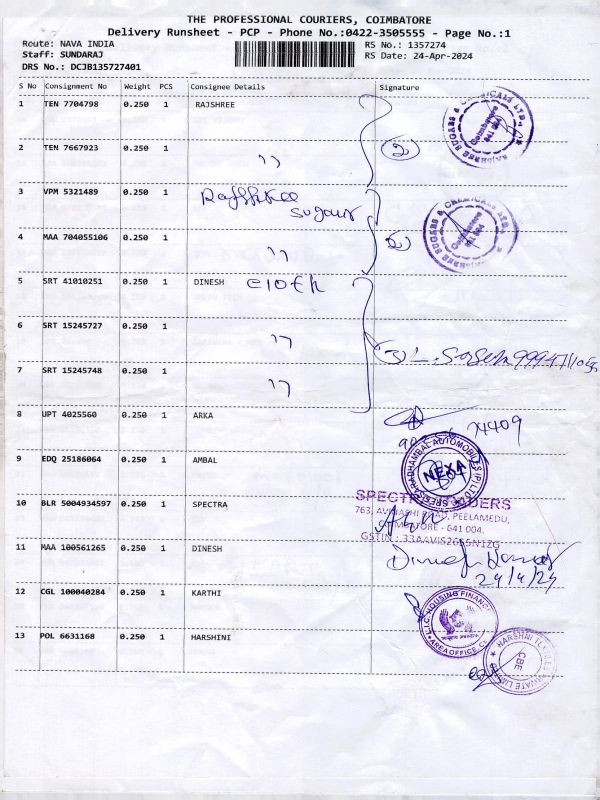 THE PROFESSIONAL COURIERS, COIMBATORE
Delivery Runsheet - PCP - Phone No.:0422-3505555 - Page No.:1
Route: NAVA INDIA
RS No.: 1357274
Staff: SUNDARAJ
RS Date: 24-Apr-2024
DRS No.: DCJB135727401
S No Consignment No Weight PCS Consignee Details Signature
1 TEN 7704798 0.250 1 RAJSHREE
2 TEN 7667923 0.250 1 " 2
3 VPM 5321489 0.250 1
4 MAA 704055106 0.250 1 "
5 SRT 41010251 0.250 1 DINESH cloth
6 SRT 15245727 0.250 1 "
7 SRT 15245748 0.250 1 "
8 UPT 4025560 0.250 1 ARKA
9 EDQ 25186064 0.250 1 AMBAL
NEXA
10 BLR 5004934597 0.250 1 SPECTRA
763, AVINASHI ROAD, PEELAMEDU,
COIMBATORE - 641 004.
11 MAA 100561265 0.250 1 DINESH
24/4/24
12 CGL 100040284 0.250 1 KARTHI
L.I.C. HOUSING FINANCE
AREA OFFICE
13 POL 6631168 0.250 1 HARSHINI
CBE